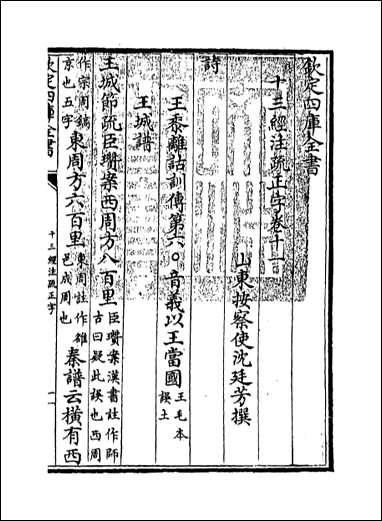 欽定四庫全書
十三經注疏正字卷十一
山東按察使沈廷芳撰
詩
王黍離詁訓傳第六○音義以王當國王毛本誤土
王城譜
王城節疏臣瓚案西周方八百里臣瓚案漢書註作師古曰疑此誤也西周
作宗周鎬京也五字東周方六百里東周註作雒邑成周也秦譜云橫有西
欽定四庫全書
十三經注疏正字
一